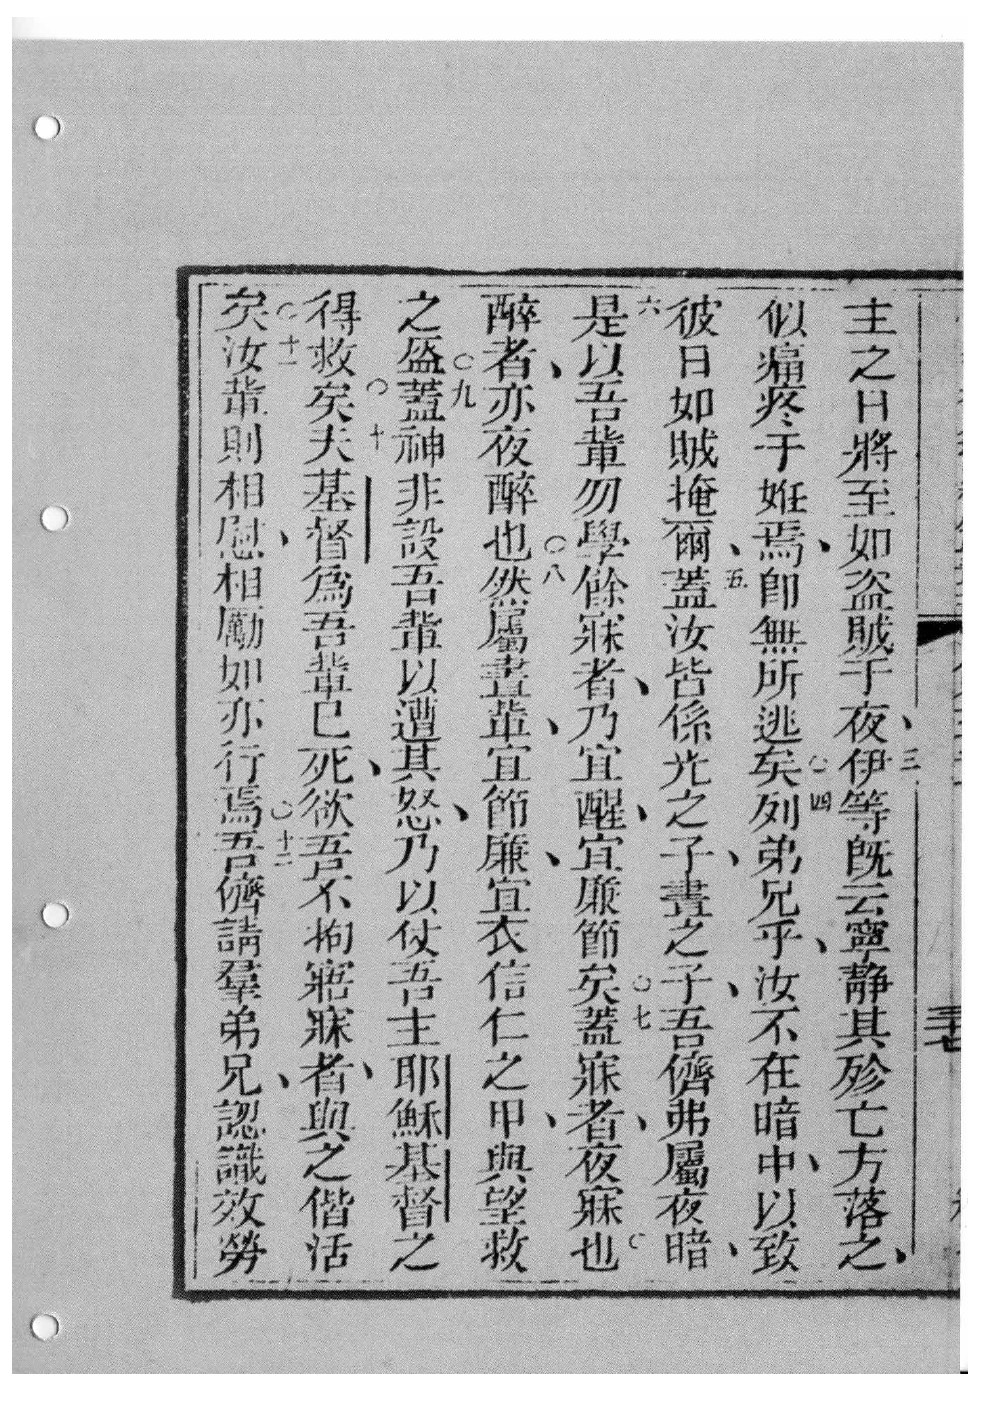 主之日將至如盜賊于夜、三伊等既云寧静其殄亡方落之、
似痛疼于姙焉、卽無所逃矣○四列弟兄乎、汝不在暗中、以致
彼日如賊掩爾、五蓋汝皆係光之子、晝之子、吾儕弗屬夜暗、
六是以吾輩勿學餘寐者、乃宜醒、宜廉節矣○七蓋寐者、夜寐也○
醉者、亦夜醉也○八然屬晝輩、宜節廉、宜衣信仁之甲、與望救
之盔○九蓋神非設吾輩以遭其怒、乃以仗吾主耶穌基督之
得救矣○十夫基督為吾輩已死、欲吾不拘寤寐者、與之偕活
矣○十一汝輩則相慰、相勵如亦行焉○十二吾儕請羣弟兄、認識效勞
三十七